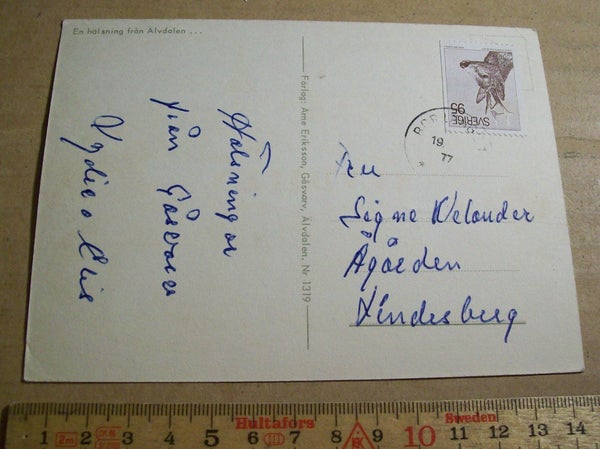 En hälsning från Älvdalen ...
Hälsningar
från Gåsvarv
Förlag: Arne Eriksson, Gåsvarv, Älvdalen. Nr 1319
SVERIGE
95
19
77
Fru
Signe Welander
Ågården
Lindesberg
Hultafors
Sweden
1 2m 2 3 4 5 6 7 III 8 9 10 11 12 13 14